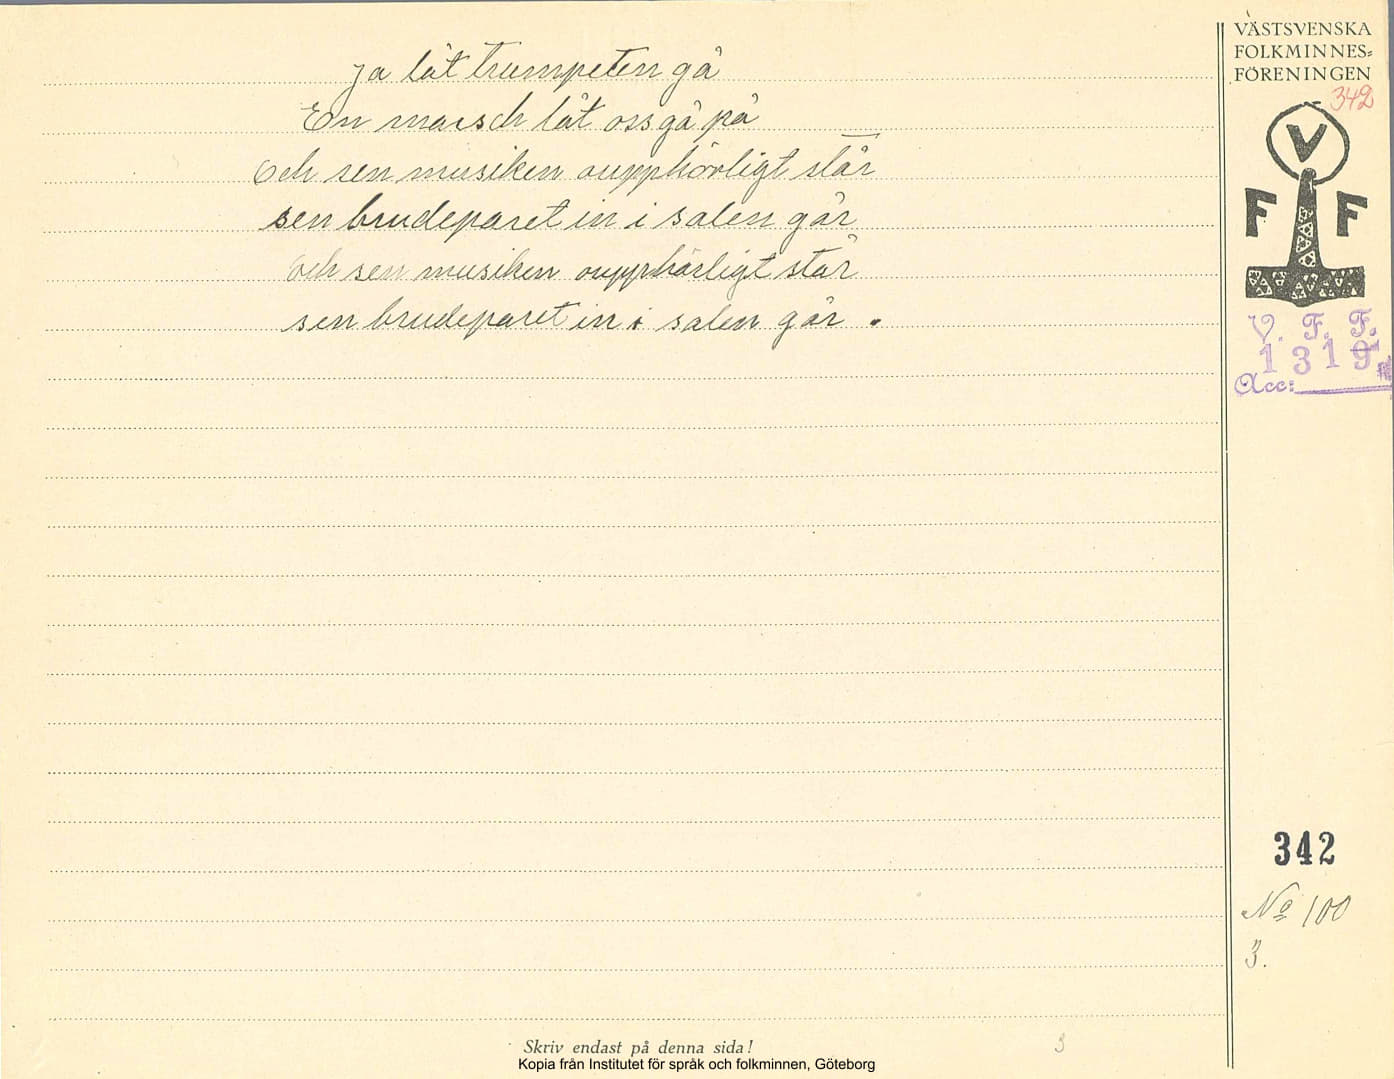 ja låt trumpeten gå
En marsch låt oss gå på
och sen musiken oupphörligt slår
sen brudeparet in i salen går
och sen musiken oupphörligt slår
sen brudeparet in i salen går.
VÄSTSVENSKA
FOLKMINNES=
FÖRENINGEN
342
V
F F
V. F. F.
1319
Acc:
342
No 100
3.
Skriv endast på denna sida!
3
Kopia från Institutet för språk och folkminnen, Göteborg